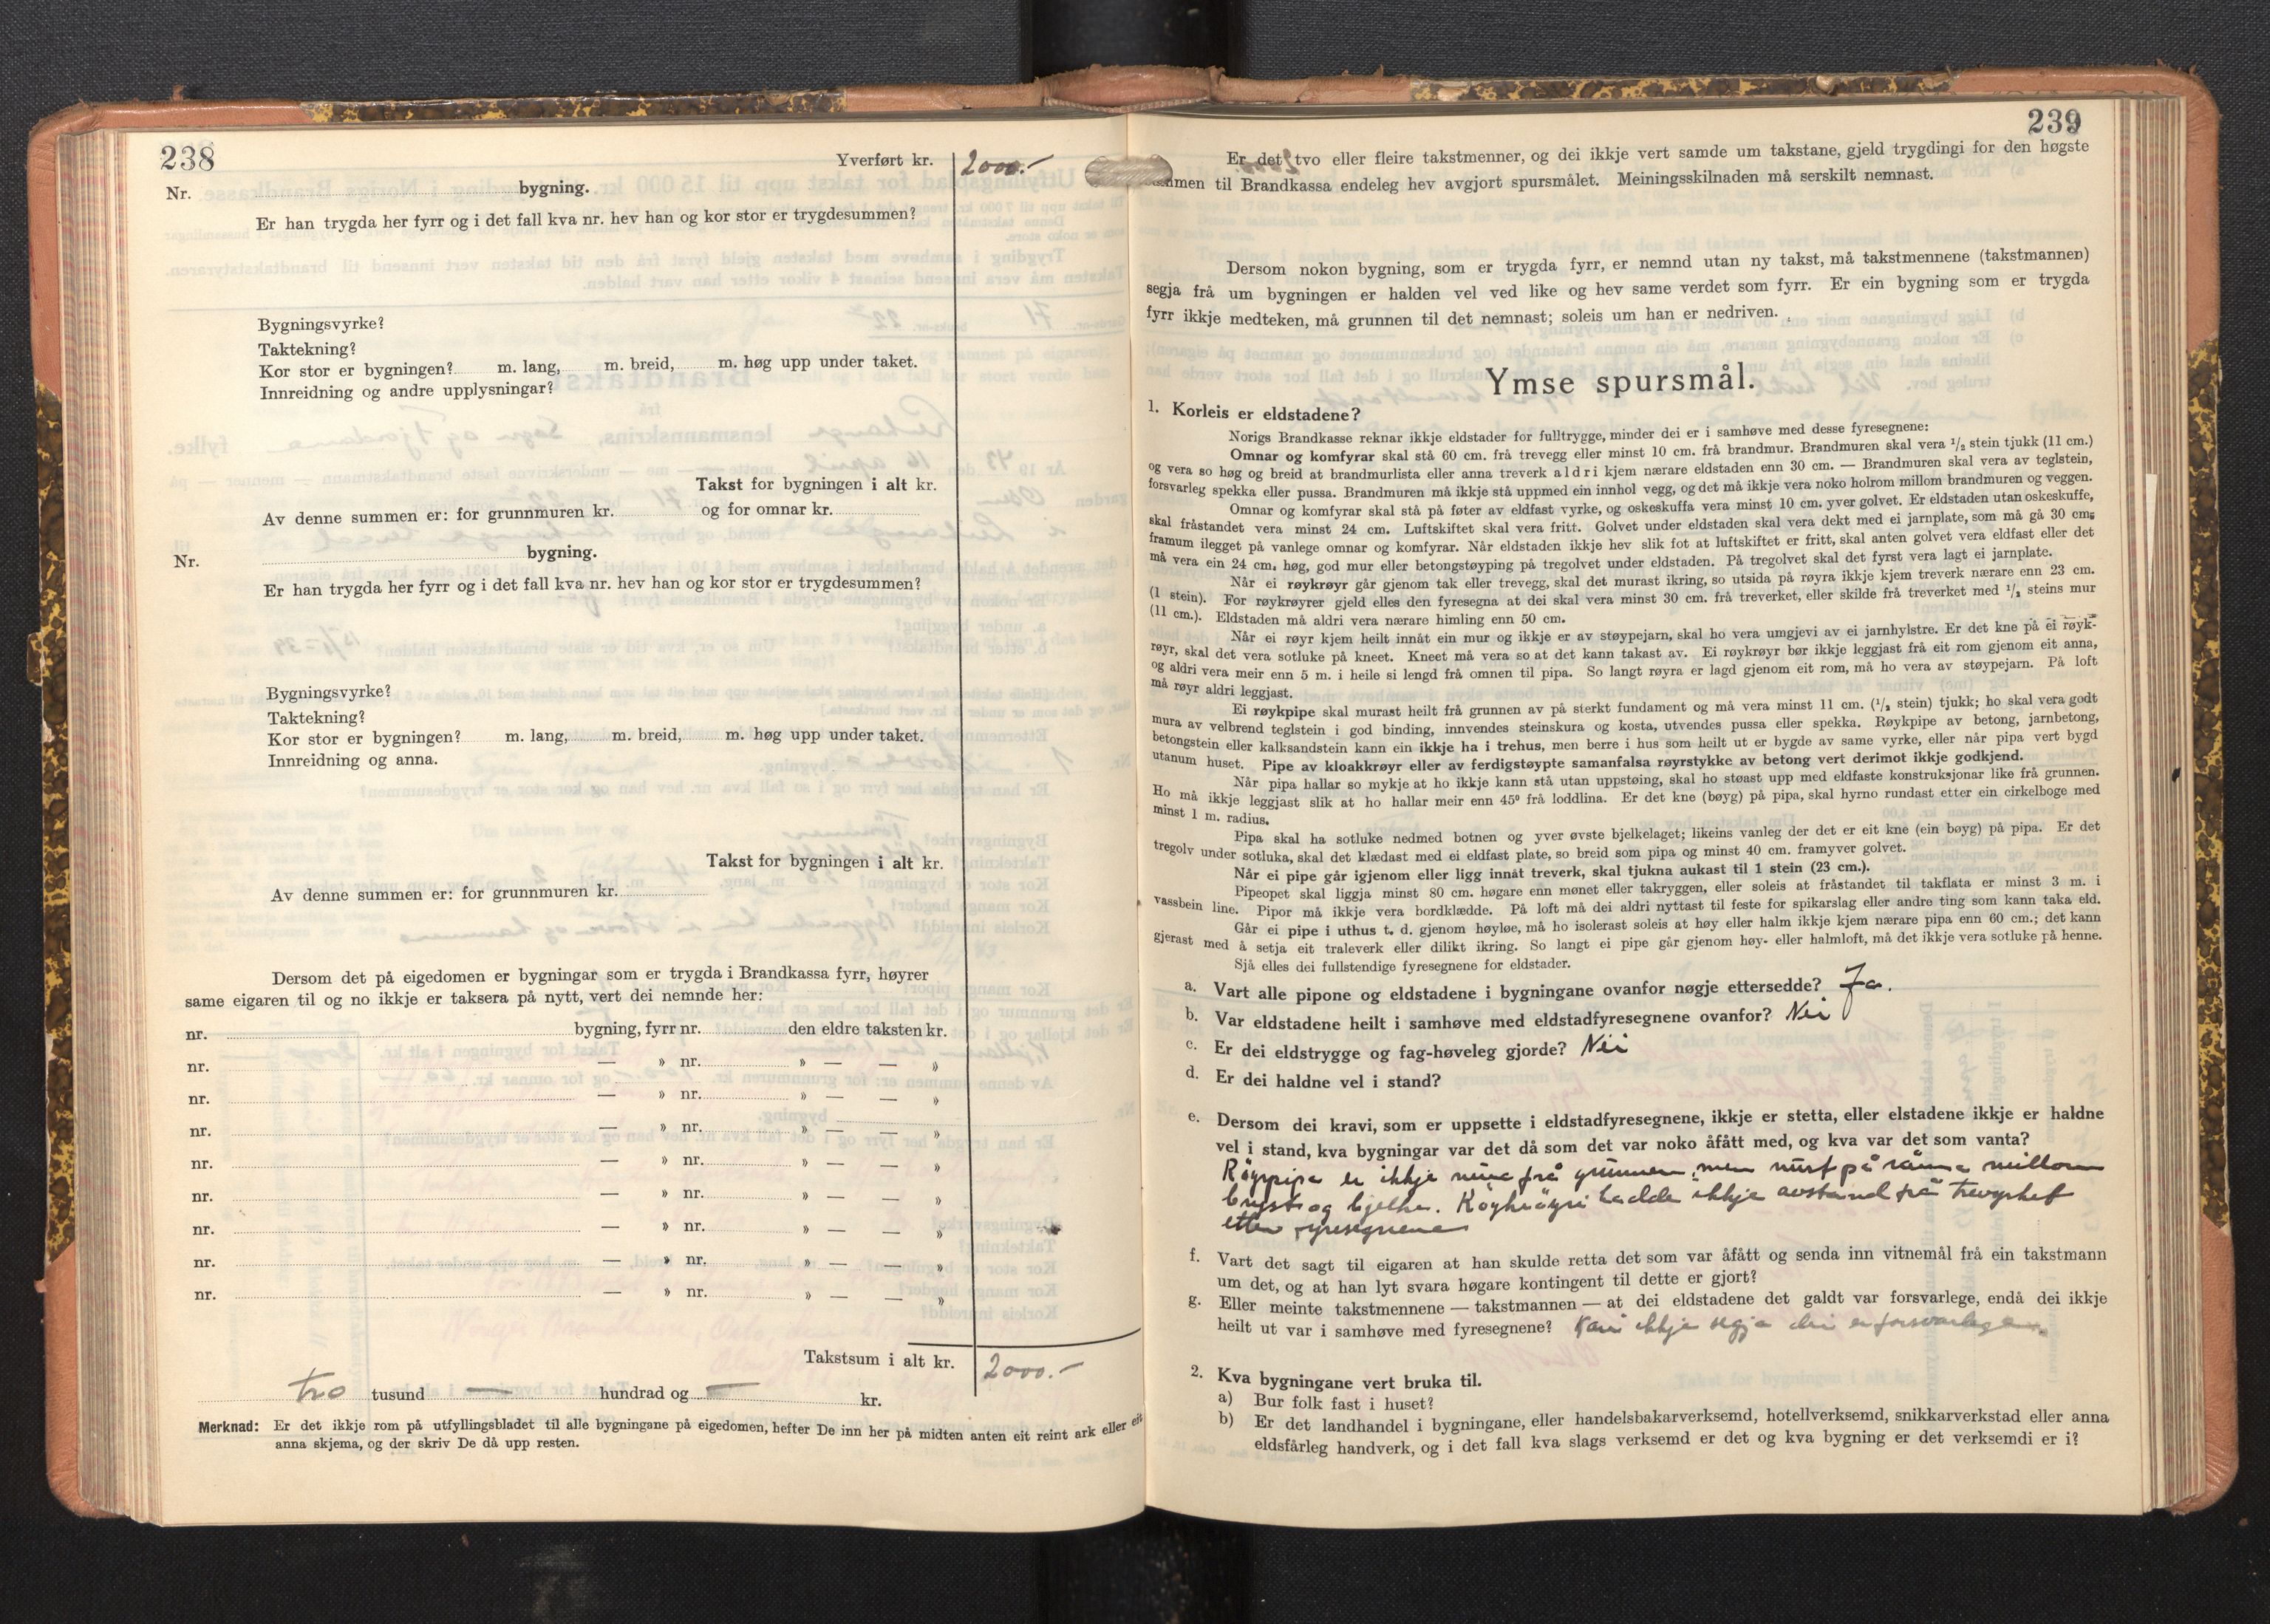 238
Yverført kr. 2000.-
Nr. bygning.
Er han trygda her fyrr og i det fall kva nr. hev han og kor stor er trygdesummen?
Bygningsvyrke?
Taktekning?
Kor stor er bygningen? m. lang, m. breid, m. høg upp under taket.
Innreidning og andre upplysningar?
Takst for bygningen i alt kr.
Av denne summen er: for grunnmuren kr. og for omnar kr.
Nr. bygning.
Er han trygda her fyrr og i det fall kva nr. hev han og kor stor er trygdesummen?
Bygningsvyrke?
Taktekning?
Kor stor er bygningen? m. lang, m. breid, m. høg upp under taket.
Innreidning og anna.
Takst for bygningen i alt kr.
Av denne summen er: for grunnmuren kr.
Dersom det på eigedomen er bygningar som er trygda i Brandkassa fyrr, høyrer
same eigaren til og no ikkje er taksera på nytt, vert dei nemnde her:
nr. bygning, fyrr nr. den eldre taksten kr.
nr. — » nr. » — — »
nr. — » nr. » — — »
nr. — » nr. » — — »
nr. — » nr. » — — »
nr. — » nr. » — — »
nr. — » nr. » — — »
nr. — » nr. » — — »
nr. — » nr. » — — »
Takstsum i alt kr. 2000.-
tvo tusund — hundrad og — kr.
Merknad: Er det ikkje rom på utfyllingsbladet til alle bygningane på eigedomen, hefter De inn her på midten anten eit reint ark eller eit
anna skjema, og der skriv De då upp resten.
239
Er det tvo eller fleire takstmenner, og dei ikkje vert samde um takstane, gjeld trygdingi for den høgste
summen til Brandkassa endeleg hev avgjort spursmålet. Meiningsskilnaden må serskilt nemnast.
Dersom nokon bygning, som er trygda fyrr, er nemnd utan ny takst, må takstmennene (takstmannen)
segja frå um bygningen er halden vel ved like og hev same verdet som fyrr. Er ein bygning som er trygda
fyrr ikkje medteken, må grunnen til det nemnast; soleis um han er nedriven.
Ymse spursmål.
1. Korleis er eldstadene?
Norigs Brandkasse reknar ikkje eldstader for fulltrygge, minder dei er i samhøve med desse fyresegnene:
Omnar og komfyrar skal stå 60 cm. frå trevegg eller minst 10 cm. frå brandmur. Brandmuren skal vera ½ stein tjukk (11 cm.)
og vera so høg og breid at brandmurlista eller anna treverk aldri kjem nærare eldstaden enn 30 cm. — Brandmuren skal vera av teglstein,
forsvarleg spekka eller pussa. Brandmuren må ikkje stå uppmed ein innhol vegg, og det må ikkje vera noko holrom millom brandmuren og veggen.
Omnar og komfyrar skal stå på føter av eldfast vyrke, og oskeskuffa vera minst 10 cm. yver golvet. Er eldstaden utan oskeskuffe,
skal fråstandet vera minst 24 cm. Luftskiftet skal vera fritt. Golvet under eldstaden skal vera dekt med ei jarnplate, som må gå 30 cm.
framum ilegget på vanlege omnar og komfyrar. Når eldstaden ikkje hev slik fot at luftskiftet er fritt, skal anten golvet vera eldfast eller det
må vera ein 24 cm. høg, god mur eller betongstøyping på tregolvet under eldstaden. På tregolvet skal det fyrst vera lagt ei jarnplate.
Når ei røykrøyr går gjenom tak eller trevegg, skal det murast ikring, so utsida på røyra ikkje kjem treverk nærare enn 23 cm.
(1 stein). For røykrøyrer gjeld elles den fyresegna at dei skal vera minst 30 cm. frå treverket, eller skilde frå treverket med ½ steins mur
(11 cm.). Eldstaden må aldri vera nærare himling enn 50 cm.
Når ei røyr kjem heilt innåt ein mur og ikkje er av støypejarn, skal ho vera umgjevi av ei jarnhylstre. Er det kne på ei røyk-
røyr, skal det vera sotluke på kneet. Kneet må vera so at det kann takast av. Ei røykrøyr bør ikkje leggjast frå eit rom gjenom eit anna,
og aldri vera meir enn 5 m. i heile si lengd frå omnen til pipa. So langt røyra er lagd gjenom eit rom, må ho vera av støypejarn. På loft
må røyr aldri leggjast.
Ei røykpipe skal murast heilt frå grunnen av på sterkt fundament og må vera minst 11 cm. (½ stein) tjukk; ho skal vera godt
mura av velbrend teglstein i god binding, innvendes steinskura og kosta, utvendes pussa eller spekka. Røykpipe av betong, jarnbetong,
betongstein eller kalksandstein kann ein ikkje ha i trehus, men berre i hus som heilt ut er bygde av same vyrke, eller når pipa vert bygd
utanum huset. Pipe av kloakkrøyr eller av ferdigstøypte samanfalsa røyrstykke av betong vert derimot ikkje godkjend.
Når pipa hallar so mykje at ho ikkje kann stå utan uppstøing, skal ho støast upp med eldfaste konstruksjonar like frå grunnen.
Ho må ikkje leggjast slik at ho hallar meir enn 45° frå loddlina. Er det kne (bøyg) på pipa, skal hyrno rundast etter ein cirkelboge med
minst 1 m. radius.
Pipa skal ha sotluke nedmed botnen og yver øvste bjelkelaget; likeins vanleg der det er eit kne (ein bøyg) på pipa. Er det
tregolv under sotluka, skal det klædast med ei eldfast plate, so breid som pipa og minst 40 cm. framyver golvet.
Når ei pipe går igjenom eller ligg innåt treverk, skal tjukna aukast til 1 stein (23 cm.).
Pipeopet skal liggja minst 80 cm. høgare enn mønet eller takryggen, eller soleis at fråstandet til takflata er minst 3 m. i
vassbein line. Pipor må ikkje vera bordklædde. På loft må dei aldri nyttast til feste for spikarslag eller andre ting som kann taka eld.
Går ei pipe i uthus t. d. gjenom høyløe, må ho isolerast soleis at høy eller halm ikkje kjem nærare pipa enn 60 cm.; det kann
gjerast med å setja eit traleverk eller dilikt ikring. So langt ei pipe går gjenom høy- eller halmloft, må det ikkje vera sotluke på henne.
Sjå elles dei fullstendige fyresegnene for eldstader.
a. Vart alle pipone og eldstadene i bygningane ovanfor nøgje ettersedde? Ja.
b. Var eldstadene heilt i samhøve med eldstadfyresegnene ovanfor? Nei
c. Er dei eldstrygge og fag-høveleg gjorde? Nei
d. Er dei haldne vel i stand?
e. Dersom dei kravi, som er uppsette i eldstadfyresegnene, ikkje er stetta, eller elstadene ikkje er haldne
vel i stand, kva bygningar var det då som det var noko åfått med, og kva var det som vanta?
er ikkje frå grunnen, men på millom
og bjelke. hadde ikkje avstand frå trevyrket
etter fyresegnene
f. Vart det sagt til eigaren at han skulde retta det som var åfått og senda inn vitnemål frå ein takstmann
um det, og at han lyt svara høgare kontingent til dette er gjort?
g. Eller meinte takstmennene — takstmannen — at dei eldstadene det galdt var forsvarlege, endå dei ikkje
heilt ut var i samhøve med fyresegnene? Kan ikkje segja dei er forsvarlege.
2. Kva bygningane vert bruka til.
a) Bur folk fast i huset?
b) Er det landhandel i bygningane, eller handelsbakarverksemd, hotellverksemd, snikkarverkstad eller anna
eldsfårleg handverk, og i det fall kva slags verksemd er det og kva bygning er det verksemdi er i?